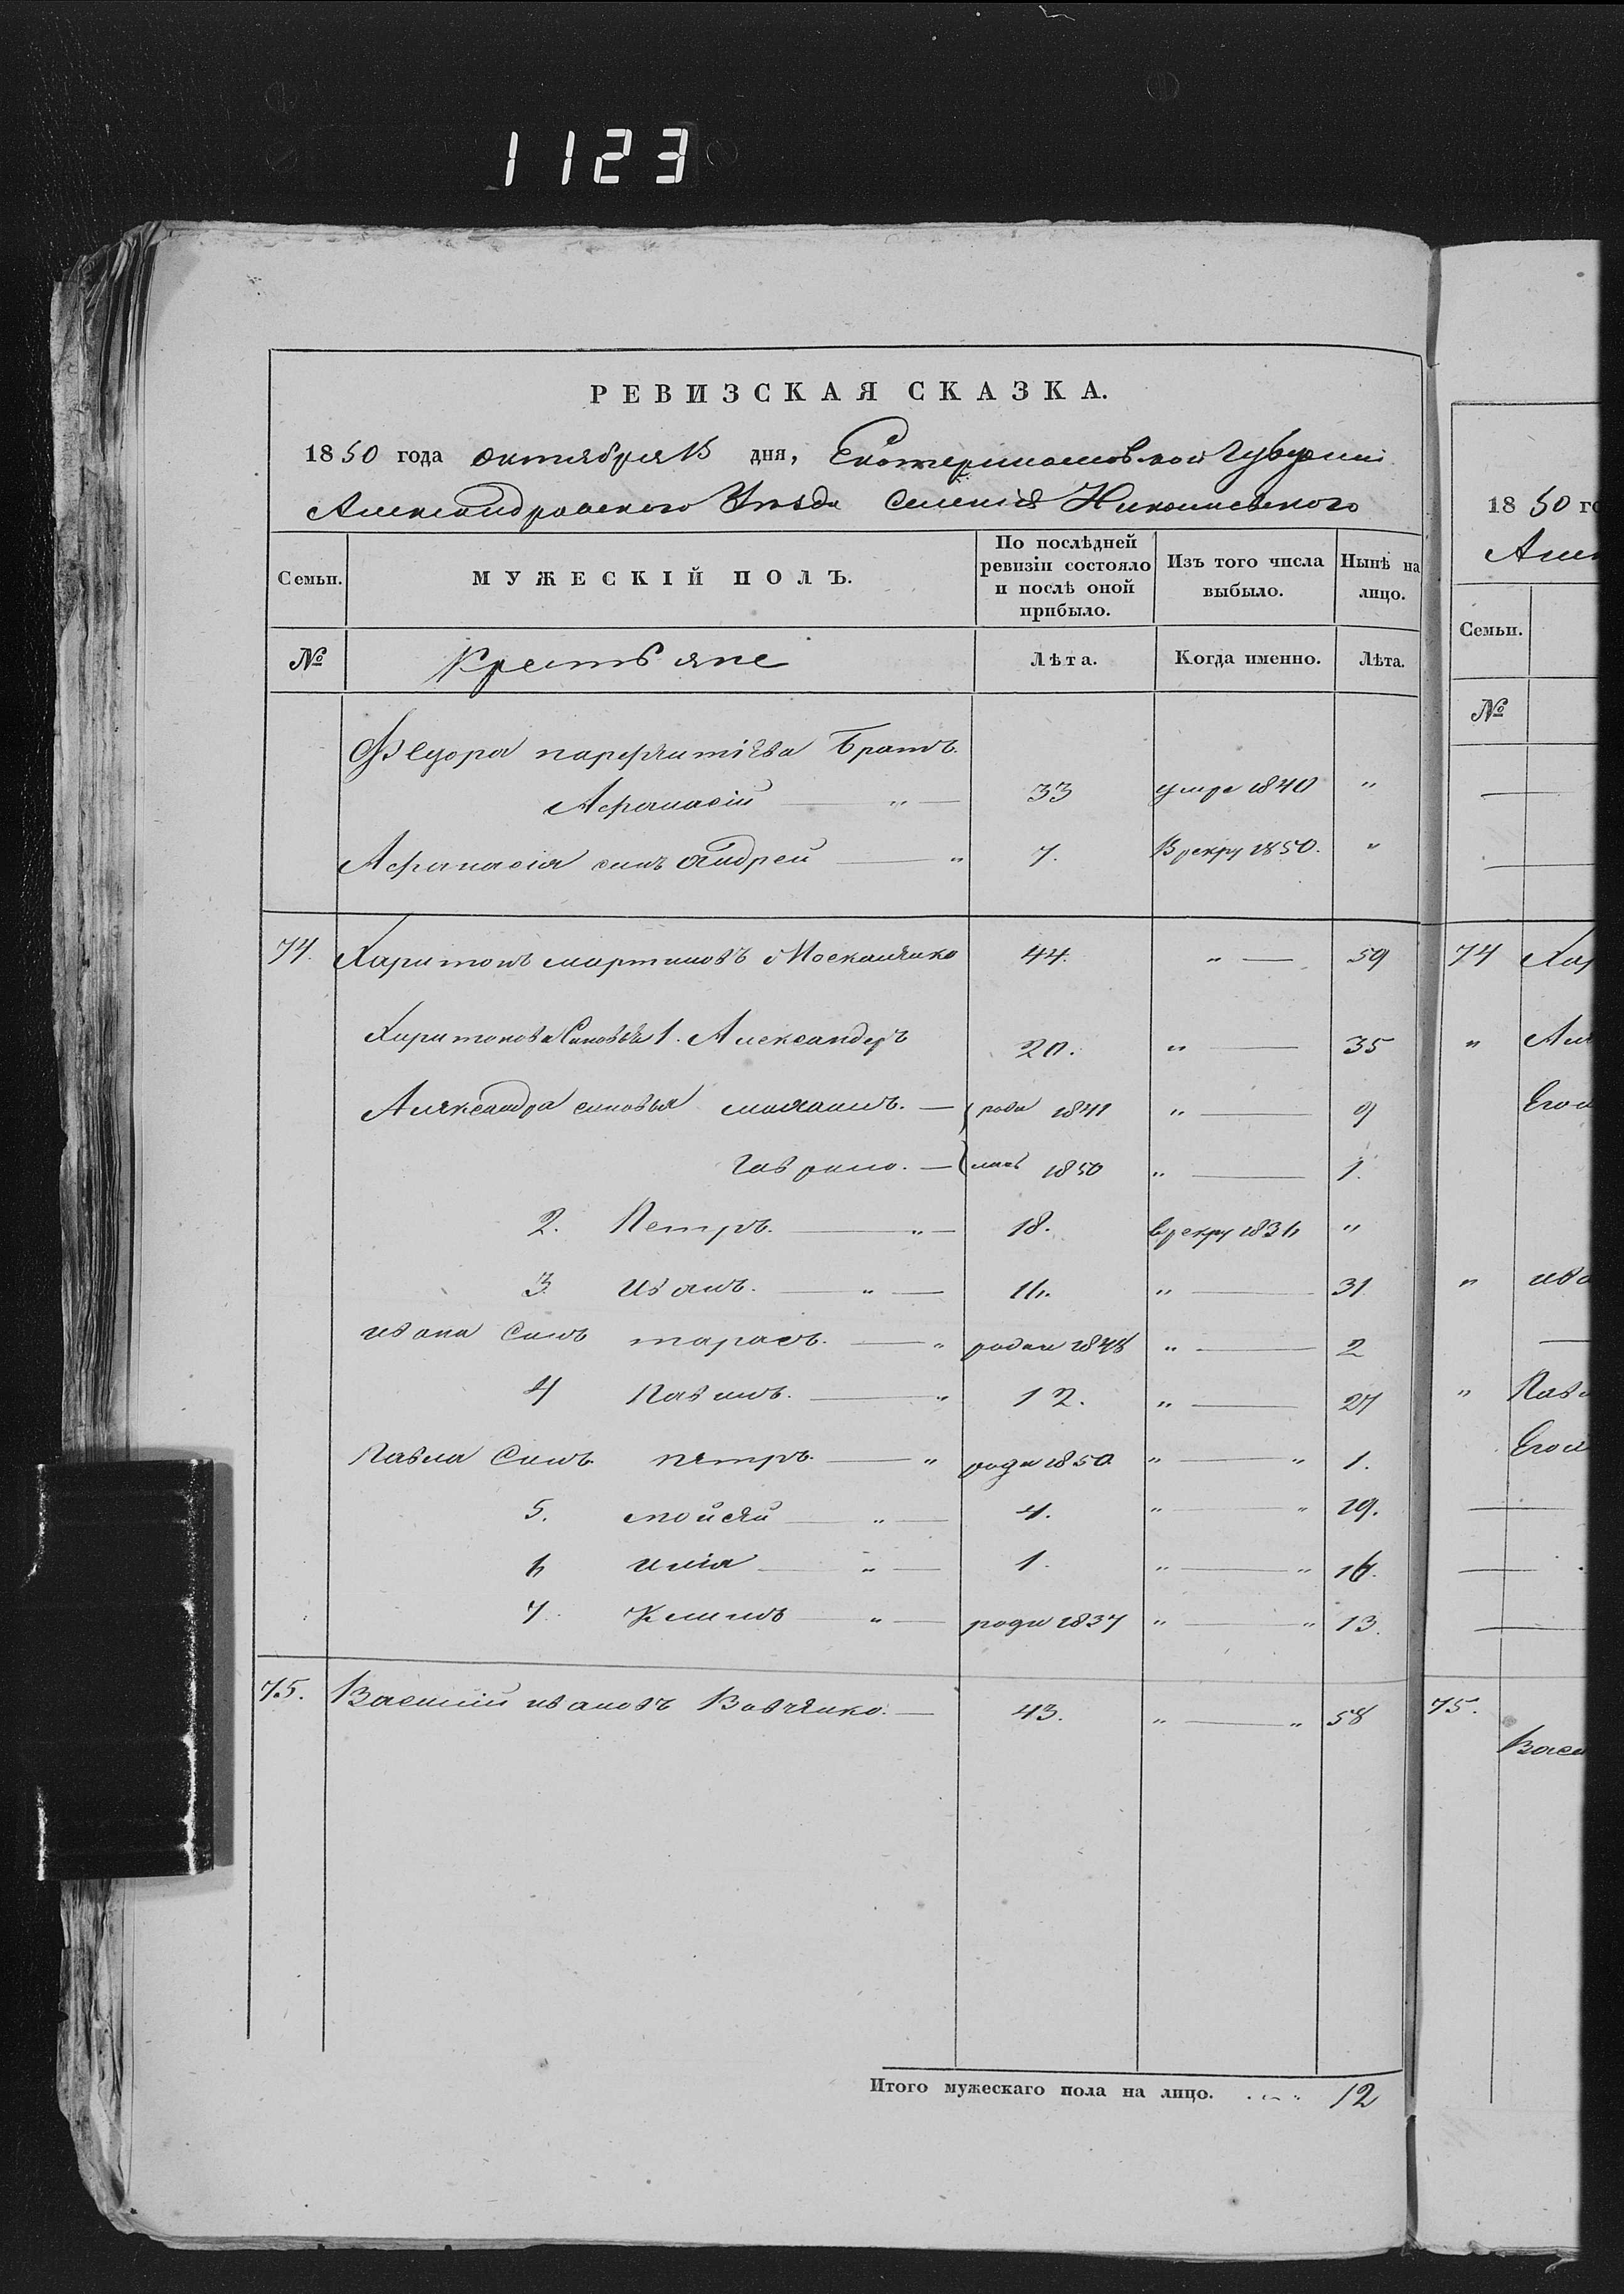 1123
РЕВИЗСКАЯ СКАЗКА.
1850 года октября 15 дня, Екатеринославской Губернии
Александровского Уѣзда Селенія Николаевского
Семьи. МУЖЕСКІЙ ПОЛЪ. По послѣдней ревизіи состояло и послѣ оной прибыло. Изъ того числа выбыло. Нынѣ на лицо.
№ Крестьяне Лѣта. Когда именно. Лѣта.
Федора парфентіева Братъ
Афанасій — " — 33 умре 1840 "
Афанасія сынъ андрей — " 7. В рекру 1850. "
74. Харитонъ мартиновъ Москаленко 44. " — 59
Харитонова Синовья 1. Александеръ 20. " — 35
Александра синовья — роди 1841 " — 9
Гаврило. — лись 1850 " — 1.
2. Петръ. — " — 18. в рекру 1836 "
3. Иванъ. — " — 16. " — 31
ивана Синъ тарасъ. — " родил 1848 " — 2
4 Павелъ. — " 12. " — 27
Павла Синъ петръ. — " роди 1850 " — " 1.
5. мойсей — " — 4. " — " 19.
6 илія — " — 1. " — " 16.
7. Климъ — " — роди 1837 " — " 13.
75. Василій ивановъ Вовченко. — 43. " — " 58
Итого мужескаго пола на лицо. .... 12
18 50 го
Алек
Семьи.
№
74 Хар
" Але
Его
" ива
" Пав
Его
75.
Васи